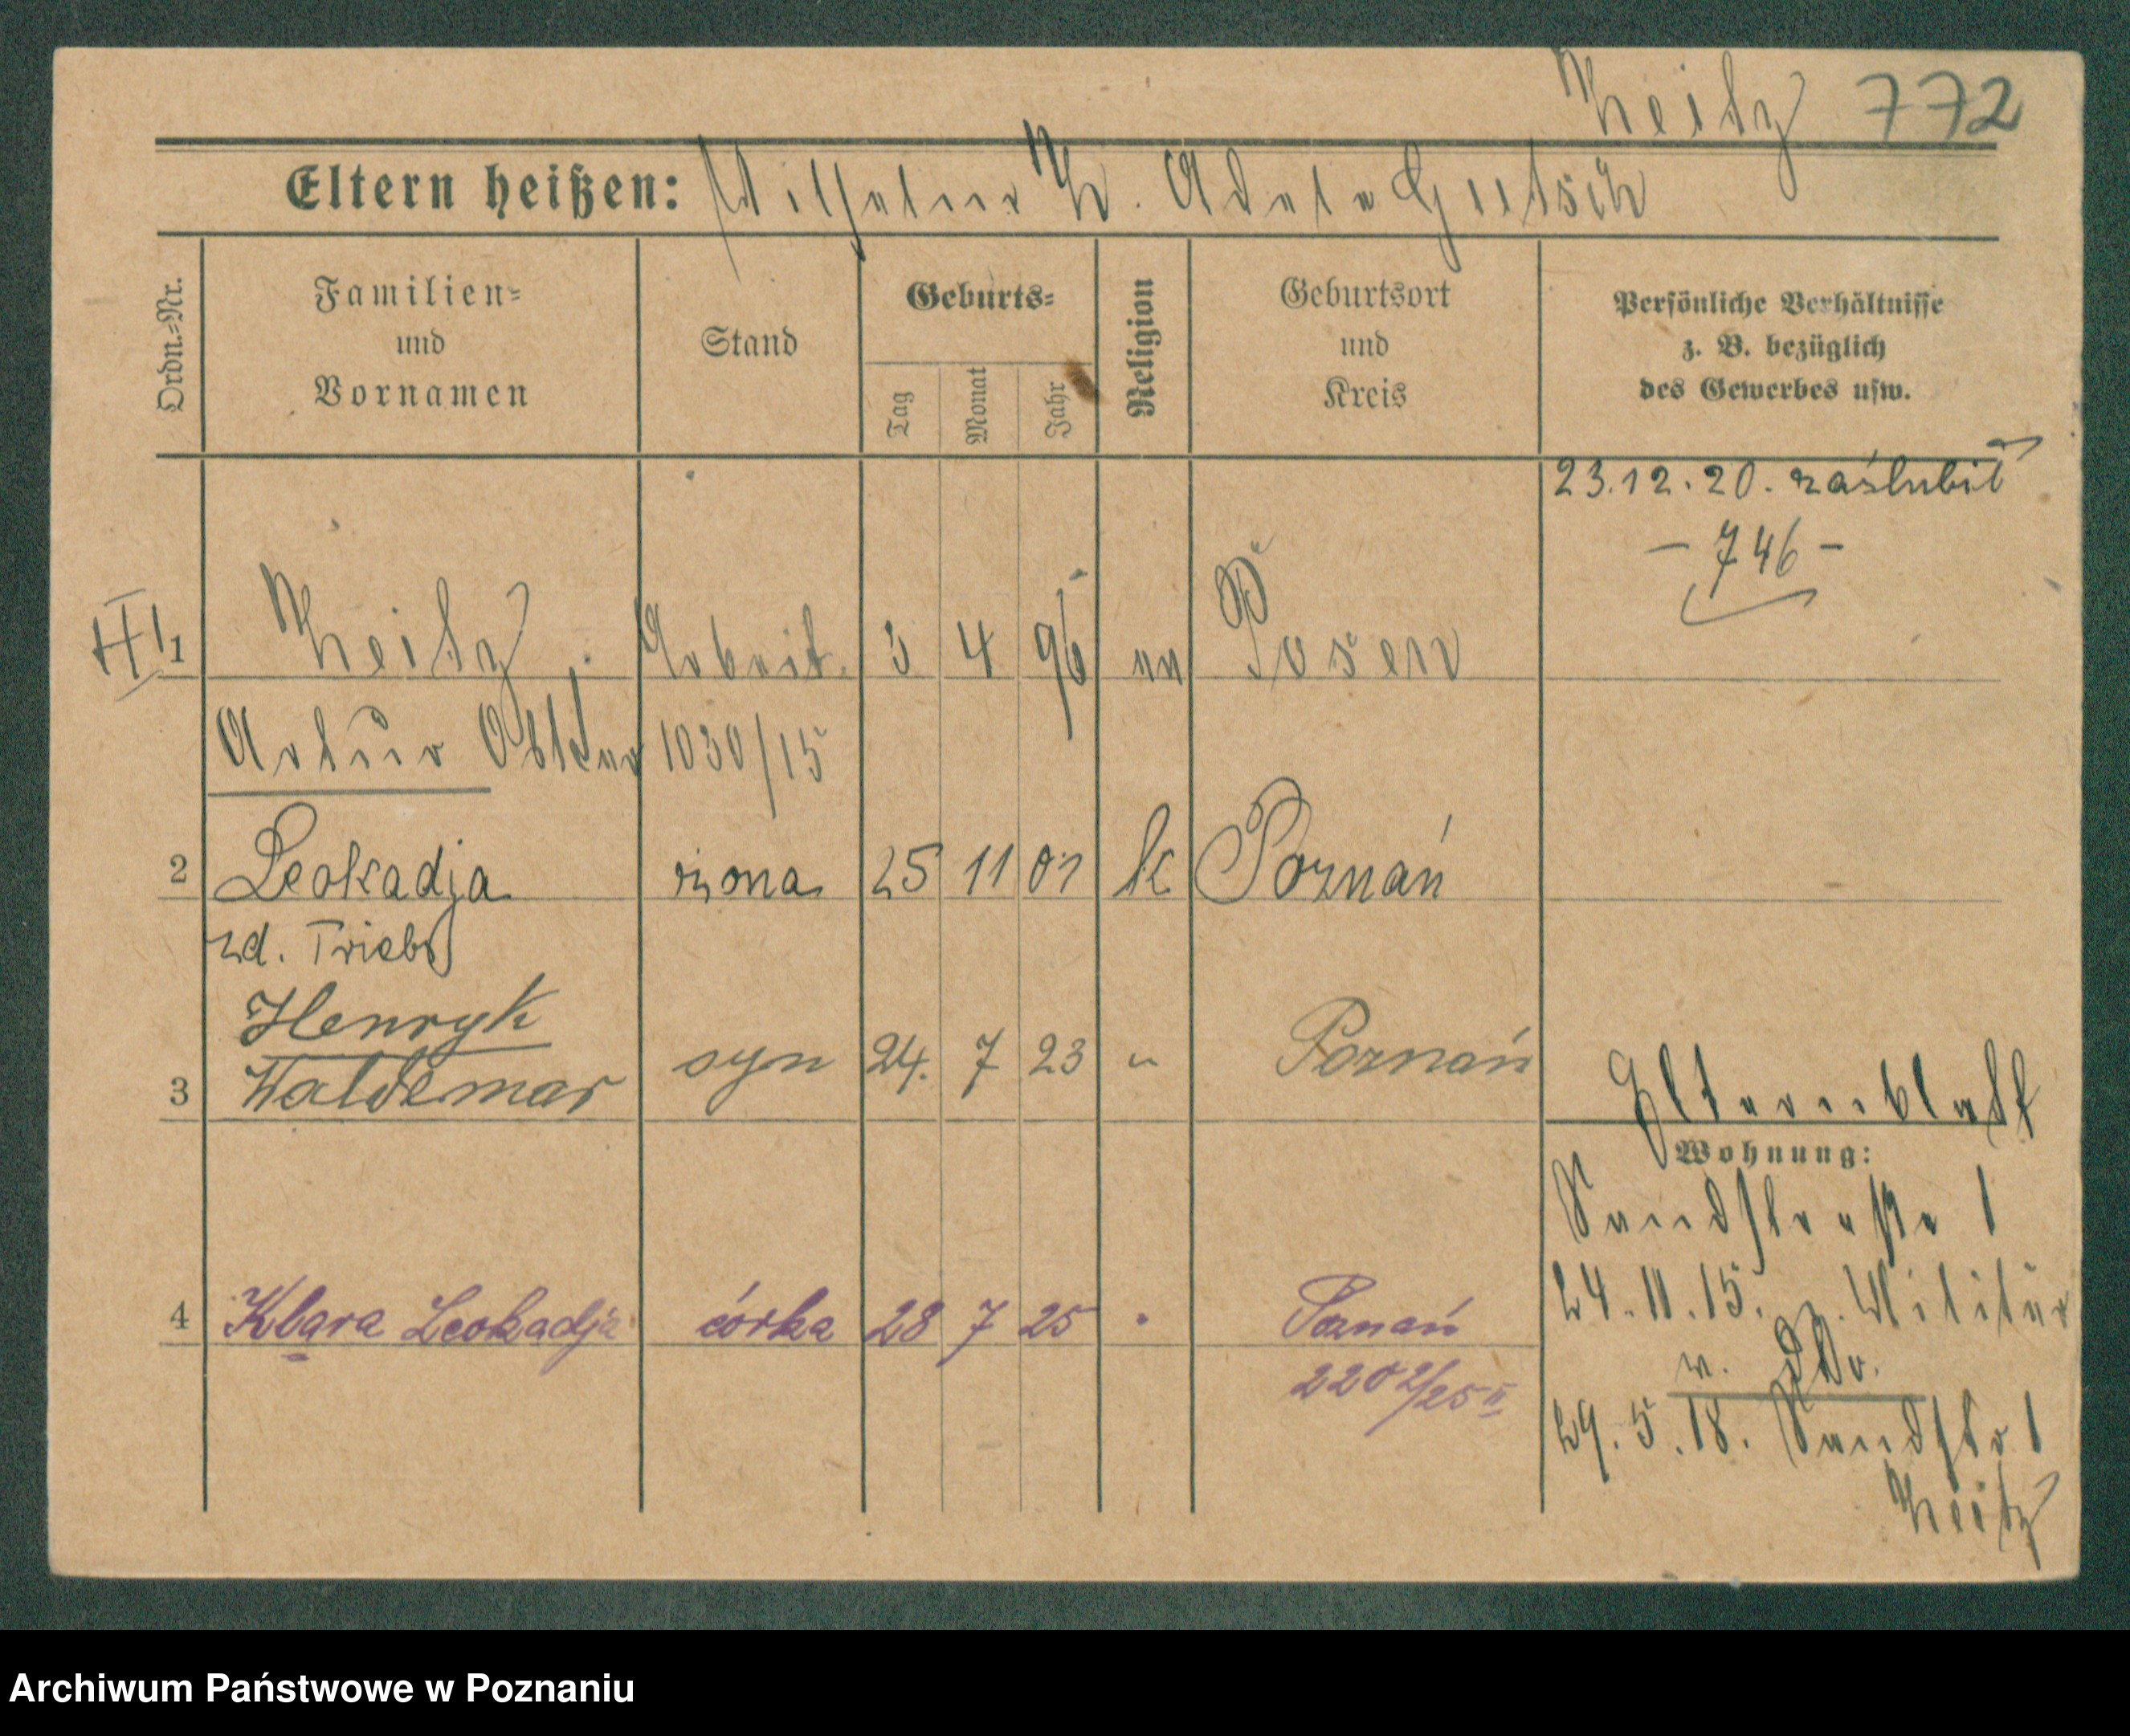 Zeitz 772
Eltern heißen: Wilhelm Z. Adele Gutsch
Ordn.-Nr.
Familien-
und
Vornamen
Stand
Geburts-
Tag
Monat
Jahr
Religion
Geburtsort
und
Kreis
Persönliche Verhältnisse
z. B. bezüglich
des Gewerbes usw.
23.12.20. zaślubił
- 746 -
1 Zeitz Arbeit. 3 4 96 Posen
Artur 1030/15
2 Leokadja żona 25 11 01 k Poznań
zd. Triebs
Henryk
3 Waldemar syn 24. 7 23 " Poznań
Elternblatt
Wohnung:
Sandstraße 1
4 Klara Leokadja córka 28 7 25 " Poznań
24.11.15. Militär
2202/25 II
29.5.18. Sandstr 1
Zeitz
Archiwum Państwowe w Poznaniu